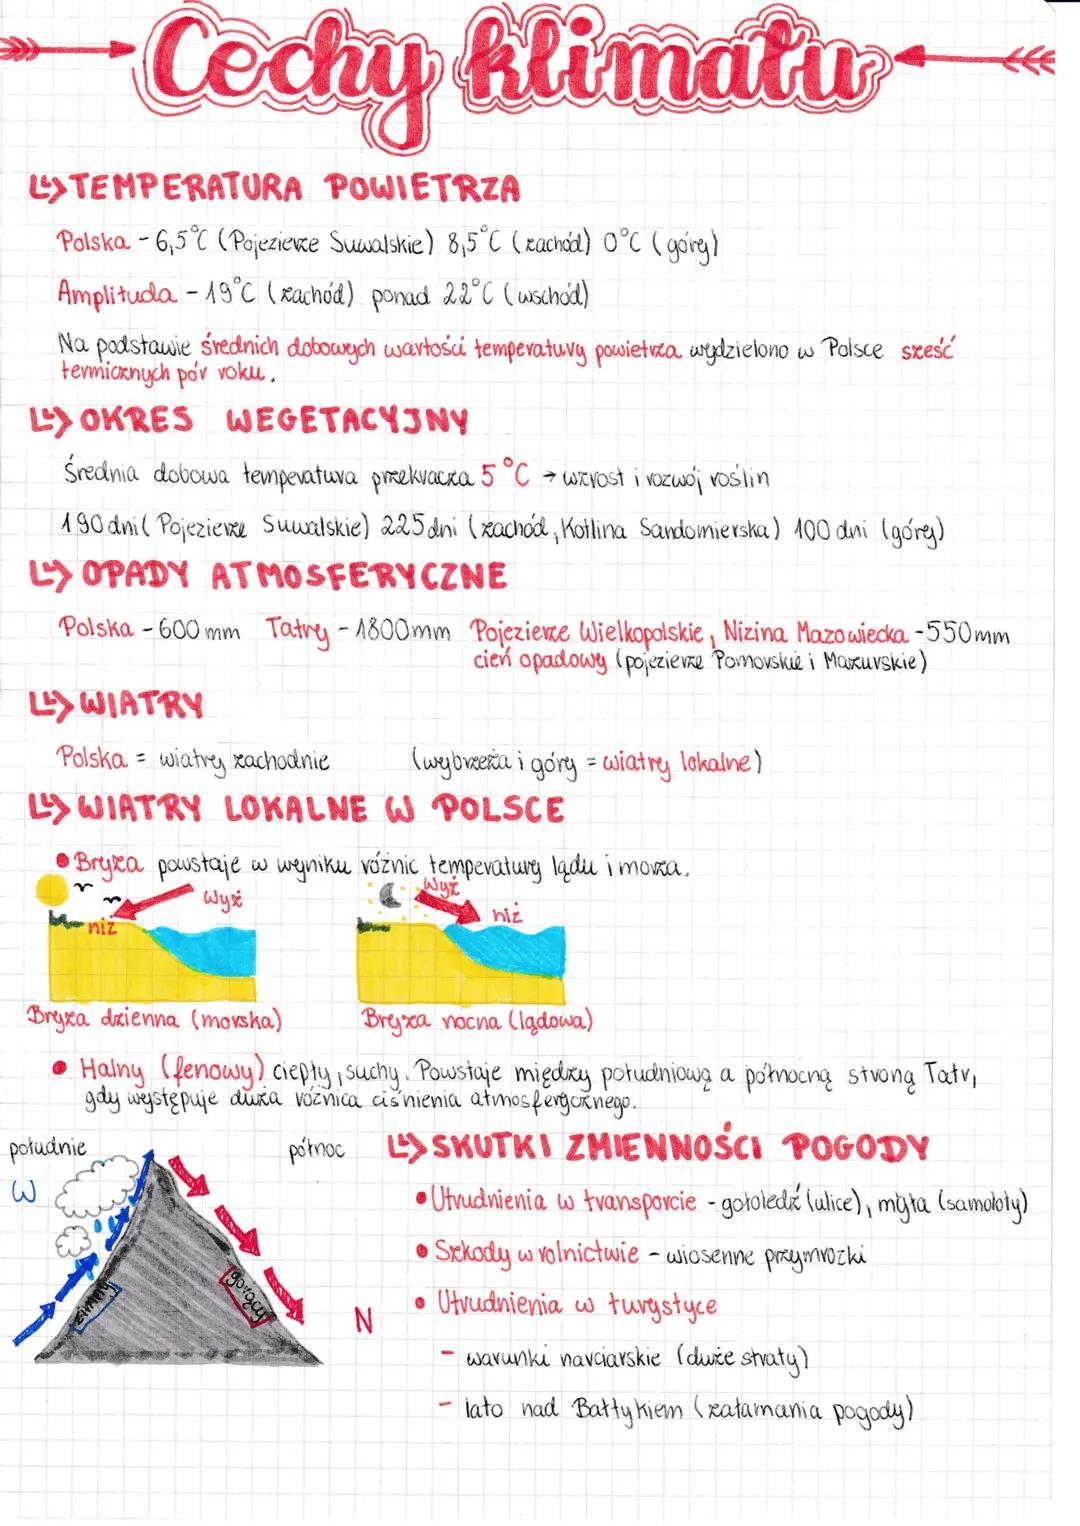 Cechy klimatu
↳> TEMPERATURA POWIETRZA
Polska - 6,5°C (Pojezierze Suwalskie) 8,5°C (zachód) 0°C (góry)
Amplituda - 19°C (zachód) ponad 22°C (wschód)
Na podstawie średnich dobowych wartości temperatury powietrza wydzielono w Polsce sześć
termicznych pór roku.
↳> OKRES WEGETACYJNY
Średnia dobowa temperatura przekracza 5°C → wzrost i rozwój roślin
190 dni (Pojezierze Suwalskie) 225 dni (zachód, Kotlina Sandomierska) 100 dni (góry)
↳> OPADY ATMOSFERYCZNE
Polska - 600 mm Tatry - 1800mm Pojezierze Wielkopolskie, Nizina Mazowiecka - 550mm
cień opadowy (pojezierze Pomorskie i Mazurskie)
↳> WIATRY
Polska = wiatry zachodnie (wybrzeża i góry = wiatry lokalne)
↳> WIATRY LOKALNE W POLSCE
• Bryza powstaje w wyniku różnic temperatury lądu i morza.
Wyż
niż
Wyż
niż
Bryza dzienna (morska) Bryza nocna (lądowa)
• Halny (fenowy) ciepły, suchy. Powstaje między południową a północną stroną Tatr,
gdy występuje duża różnica ciśnienia atmosferycznego.
południe
północ
W
zimny
gorący
N
↳> SKUTKI ZMIENNOŚCI POGODY
• Utrudnienia w transporcie - gołoledź (ulice), mgła (samoloty)
• Szkody w rolnictwie - wiosenne przymrozki
• Utrudnienia w turystyce
- warunki narciarskie (duże straty)
- lato nad Bałtykiem (załamania pogody)